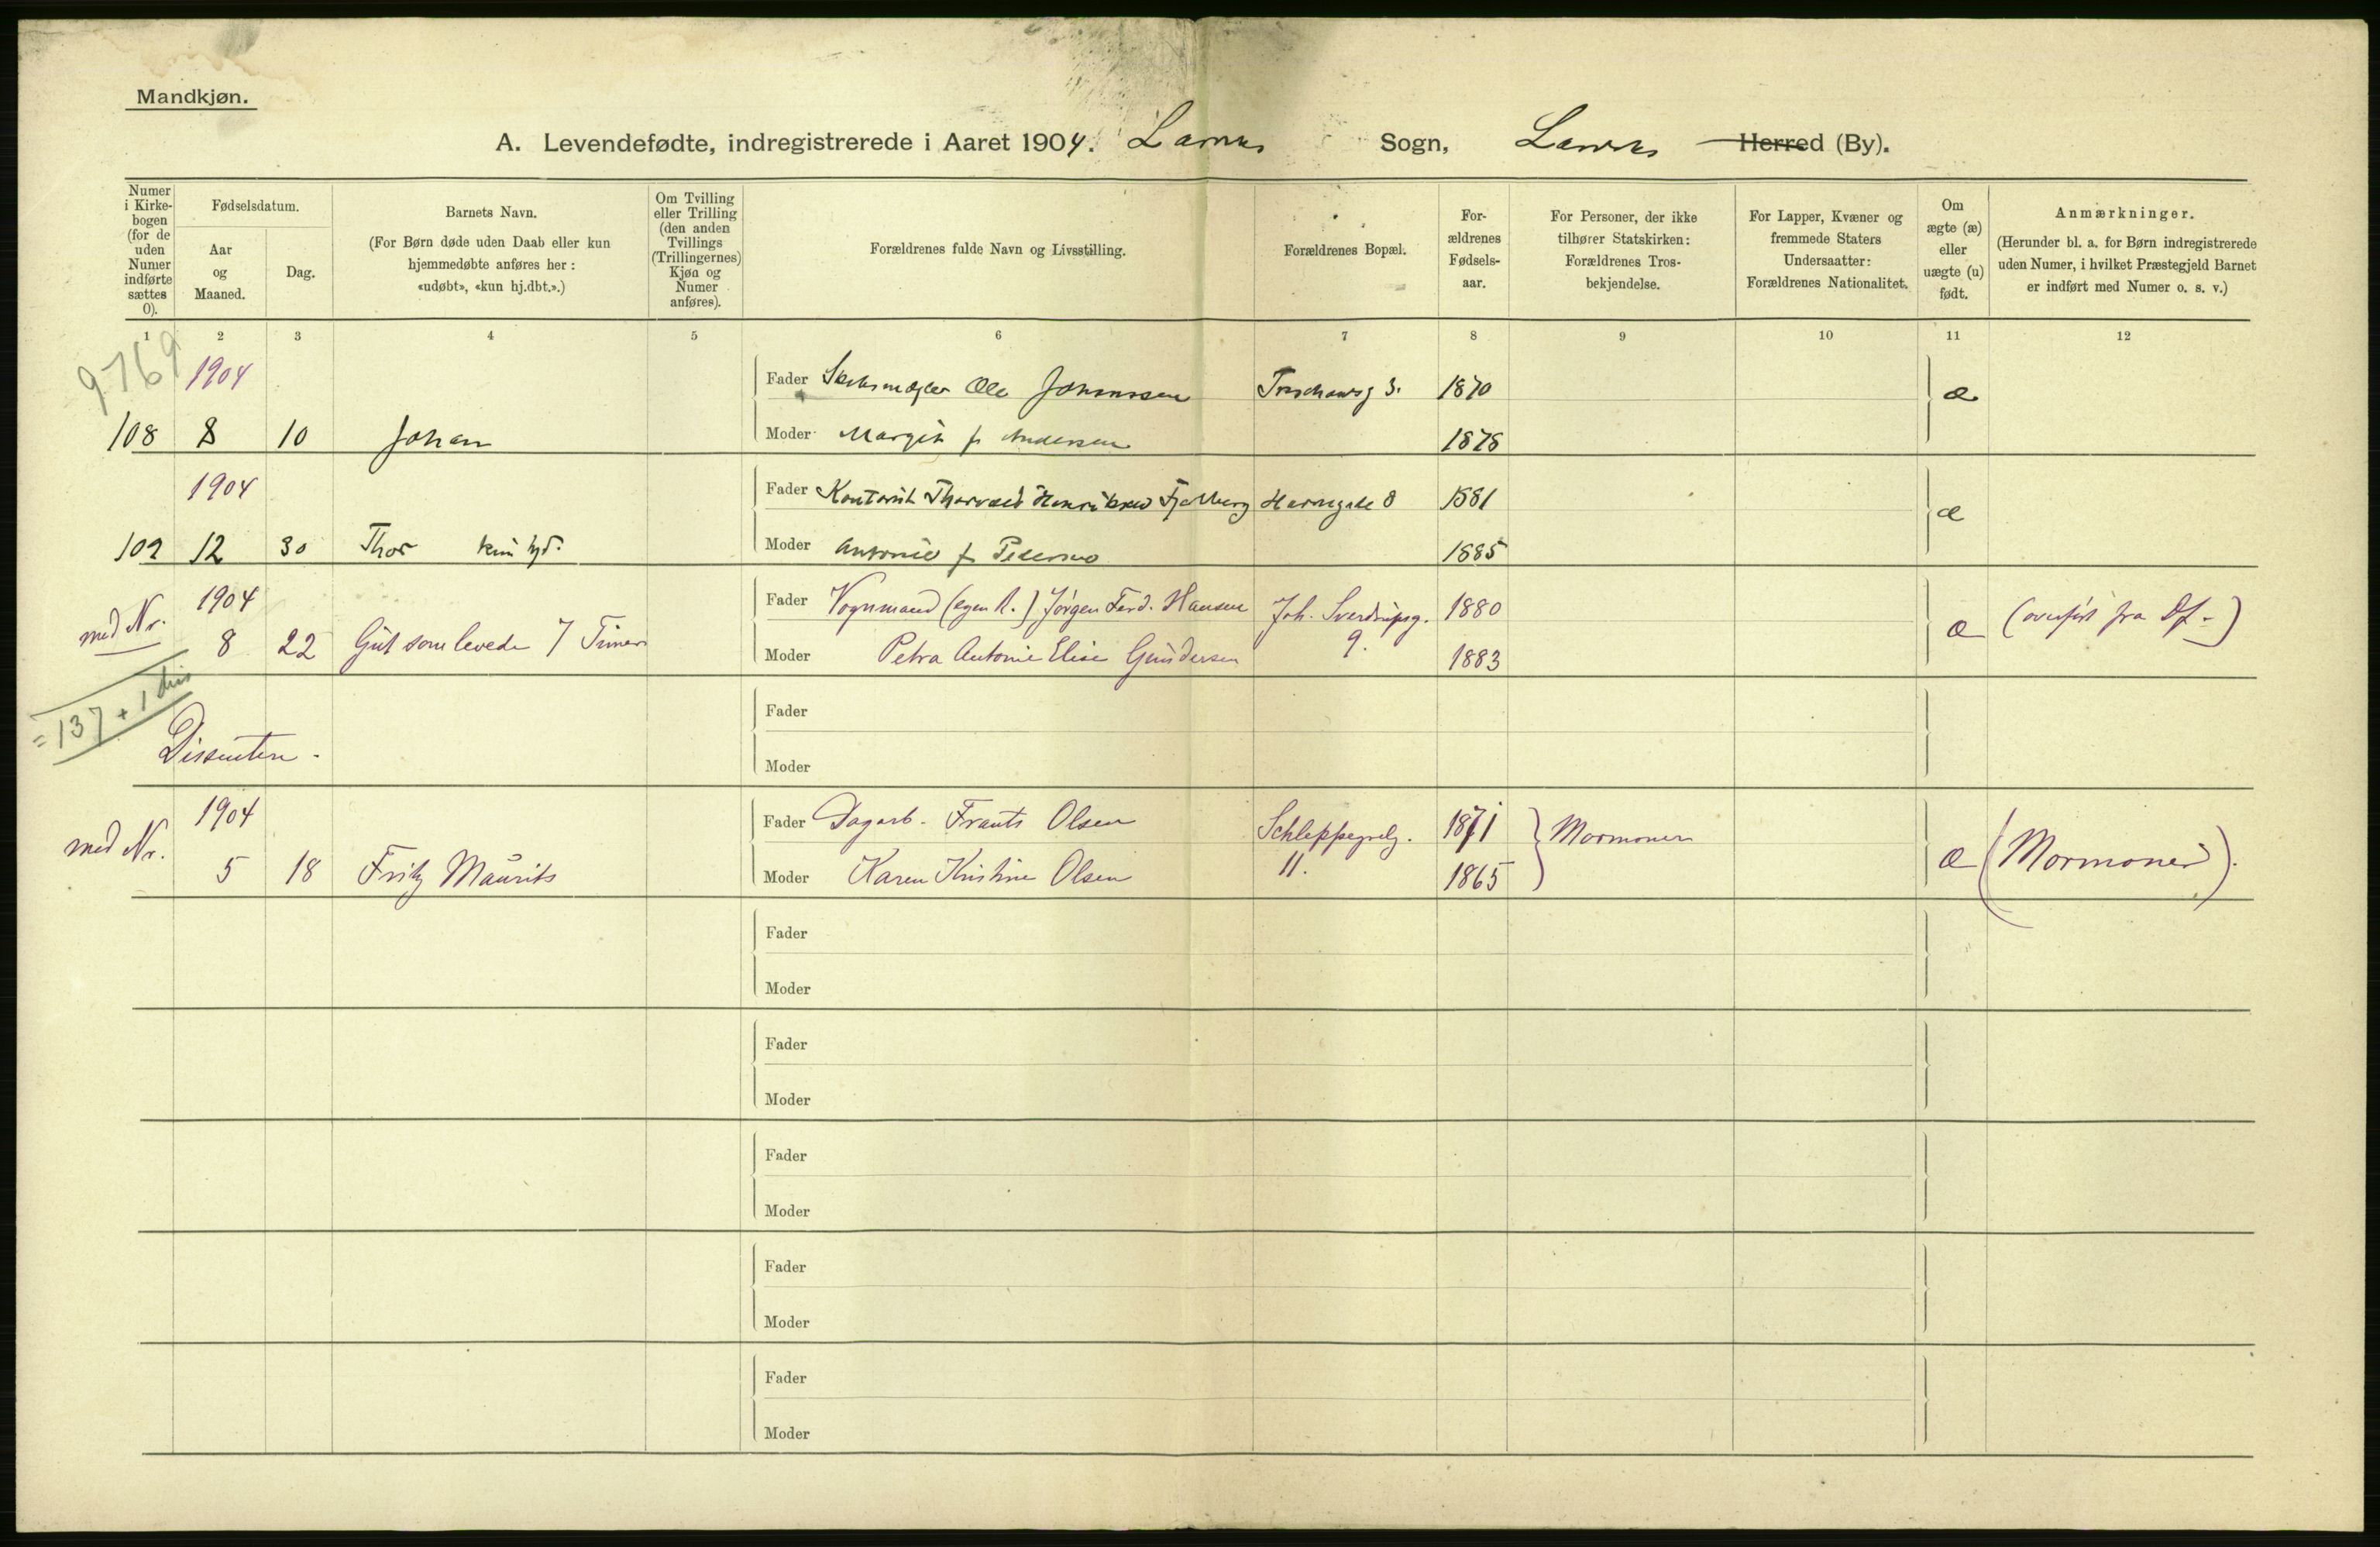 Mandkjøn.
A. Levendefødte, indregistrerede i Aaret 1904. Sogn, Herred (By).
Numer i Kirke-bogen (for de uden Numer indførte sættes 0).
Fødselsdatum.
Aar og Maaned.
Dag.
Barnets Navn.
(For Børn døde uden Daab eller kun hjemmedøbte anføres her: «udøbt», «kun hj.dbt.».)
Om Tvilling eller Trilling (den anden Tvillings (Trillingernes) Kjøn og Numer anføres).
Forældrenes fulde Navn og Livsstilling.
Forældrenes Bopæl.
For-ældrenes Fødsels-aar.
For Personer, der ikke tilhører Statskirken: Forældrenes Tros-bekjendelse.
For Lapper, Kvæner og fremmede Staters Undersaatter: Forældrenes Nationalitet.
Om ægte (æ) eller uægte (u) født.
Anmærkninger.
(Herunder bl. a. for Børn indregistrerede uden Numer, i hvilket Præstegjeld Barnet er indført med Numer o. s. v.)
1 2 3 4 5 6 7 8 9 10 11 12
9769
1904
Fader Ole Johannssen 3. 1870 æ
108 8 10 Johan
Moder Margit f. Andersen 1878
1904
Fader Kontorist Thorvald Henriksen Fjeldberg Havnegade 8 1881 æ
109 12 30 Thor kun hjd.
Moder Antonie f. Pedersen 1885
med Nr. 1904
Fader Vognmand (egen R.) Jørgen Ferd. Hansen Joh. Sverdrupsg. 9. 1880 æ (overført fra Df.)
8 22 Gut som levede 7 Timer
Moder Petra Antonie Elise Gundersen 1883
= 137 + 1 dis
Fader
Dissentere.
Moder
med Nr. 1904
Fader Dagarb. Frants Olsen Schleppegrelg. 11. 1871 Mormoner æ (Mormoner).
5 18 Fritz Maurits
Moder Karen Kristine Olsen 1865
Fader
Moder
Fader
Moder
Fader
Moder
Fader
Moder
Fader
Moder